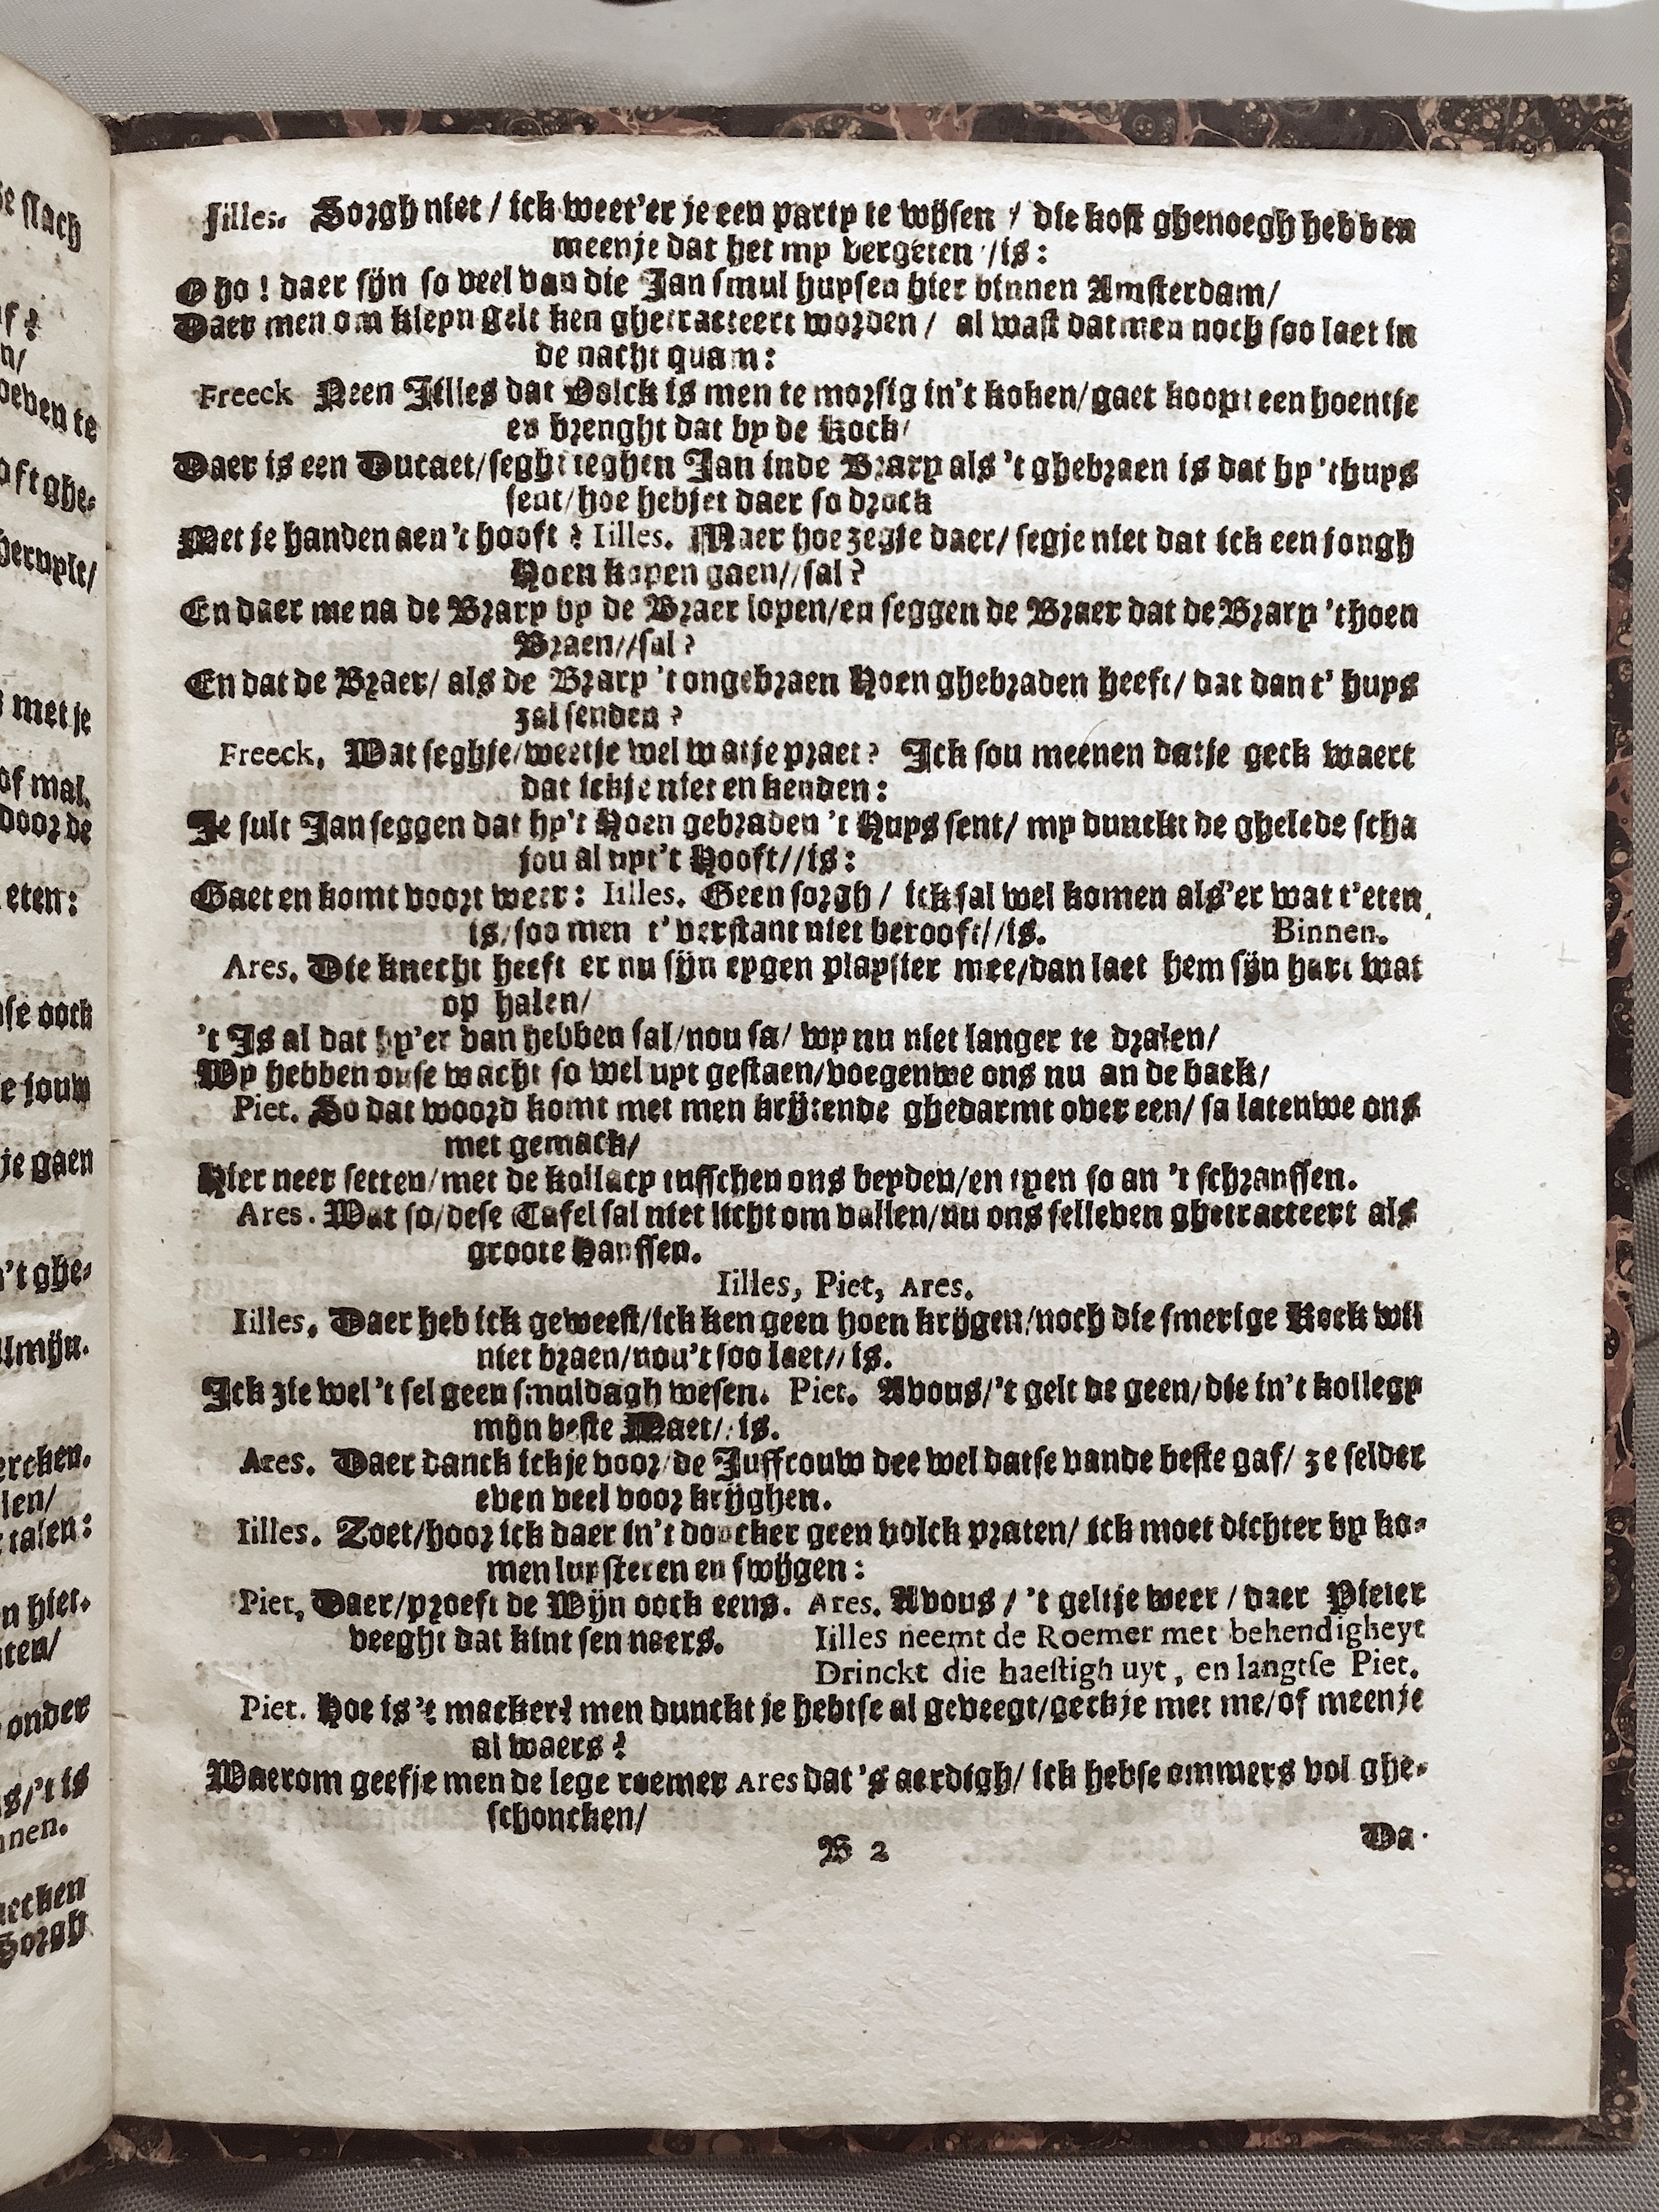 Jilles. Sorgh niet / ick weet'er je een party te wijsen / die kost ghenoegh hebben
meenje dat het my vergeten //is:
O ho! daer sijn so veel van die Jan smul huysen hier binnen Amsterdam/
Daer men om kleyn gelt ken ghetracteert worden / al wast dat men noch soo laet in
de nacht quam:
Freeck Neen Jilles dat Volck is men te morsig in't koken/gaet koopt een hoentje
en brenght dat by de Kock/
Daer is een Ducaet/seght teghen Jan inde Brary als 't ghebraen is dat hy 't huys
sent/hoe hebjet daer so drock
Met je handen aen't hooft? Iilles. Maer hoe zegje daer/ segje niet dat ick een jongh
Hoen kopen gaen//sal?
En daer me na de Brary by de Braer lopen/en seggen de Braer dat de Brary 't hoen
Braen//sal?
En dat de Braer/ als de Brary 't ongebraen Hoen ghebraden heeft/ dat dan t' huys
zal senden?
Freeck, Wat seghje/weetje wel watje praet? Ick sou meenen datje geck waert
dat ickje niet en kenden:
Je sult Jan seggen dat hy't Hoen gebraden 't Huys sent/ my dunckt de ghelede scha
jou al uyt't Hooft//is:
Gaet en komt voort weer: Iilles. Geen sorgh / ick sal wel komen als'er wat t'eten
is/soo men t' verstant niet berooft//is. Binnen.
Ares. Die knecht heeft er nu sijn eygen playster mee/dan laet hem sijn hart wat
op halen/
't Is al dat hy'er van hebben sal/nou sa/ wy nu niet langer te dralen/
Wy hebben onse wacht so wel uyt gestaen/voegenwe ons nu an de back/
Piet. So dat woord komt met men krijtende ghedarmt over een/ sa latenwe ons
met gemack/
Hier neer setten/met de kollacy tusschen ons beyden/en tyen so an 't schranssen.
Ares. Wat so/dese Tafel sal niet licht om vallen/nu ons selleven ghetracteert als
groote Hanssen.
Iilles, Piet, Ares.
Iilles. Daer heb ick geweest/ick ken geen hoen krijgen/noch die smerige Kock wil
niet braen/nou't soo laet// is.
Ick zie wel't sel geen smuldagh wesen. Piet. Avous/'t gelt de geen/die in't kollegy
mijn beste Maet// is.
Ares. Daer danck ickje voor/de Juffrouw dee wel datse vande beste gaf/ ze selder
even veel voor krijghen.
Iilles. Zoet/hoor ick daer in't doncker geen volck praten/ ick moet dichter by ko-
men luysteren en swijgen:
Piet, Daer/proeft de Wijn oock eens. Ares. Avous / 't geltje weer / daer Pieter
veeght dat kint sen neers. Iilles neemt de Roemer met behendigheyt
Drinckt die haestigh uyt, en langtse Piet.
Piet. Hoe is 't macker? men dunckt je hebtse al geveegt/geckje met me/of meenje
al waers?
Waerom geefje men de lege roemer Ares dat 's aerdigh/ ick hebse ommers vol ghe-
schoncken/
B 2 Da